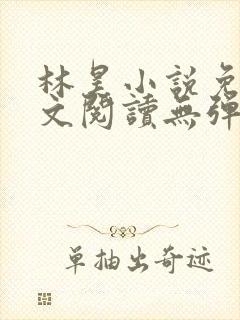 林昊小説免
文閱讀無彈
單抽出奇迹